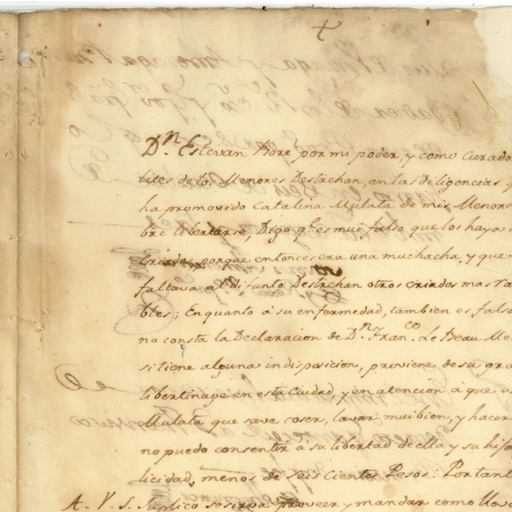 Dn. Estevan Boré por mi poder, y como Curado
de los Menores Destrehan, en las diligencias q
ha promovido Catalina Mulata de mis Menore
bre libertarse, Digo qe. es mui falso que los haya
Criado, porque entonces era una muchacha, y que
faltava al difunto Destrehan otros criados mas
bles; En quanto à su enfermedad, tambien es falso
no consta la Declaracion de Dn. Franco. le Beau Me
si tiene alguna indisposicion, proviene de su gra
libertinage en esta Ciudad, y en atencion à que
Mulata que save coser, lavar mui bien, y hacer
no puedo consentir à su libertad de ella y su hija
licidad, menos de seis Cientos Pesos: Por tant
A. V. S. Suplico se sirva proveer y mandar como llevo